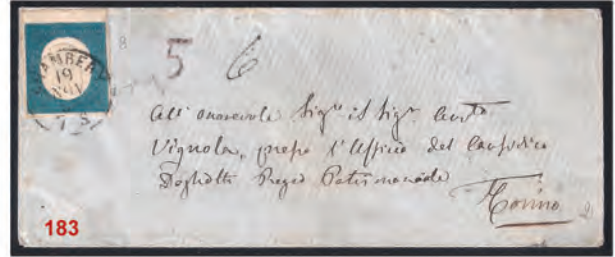 CHAMBERY
19
NOV
8
5 6
All' onorevole Sigre il Sigr
Vignola, presso l'Ufficio del Causidico
Regio Patrimoniale
Torino
183